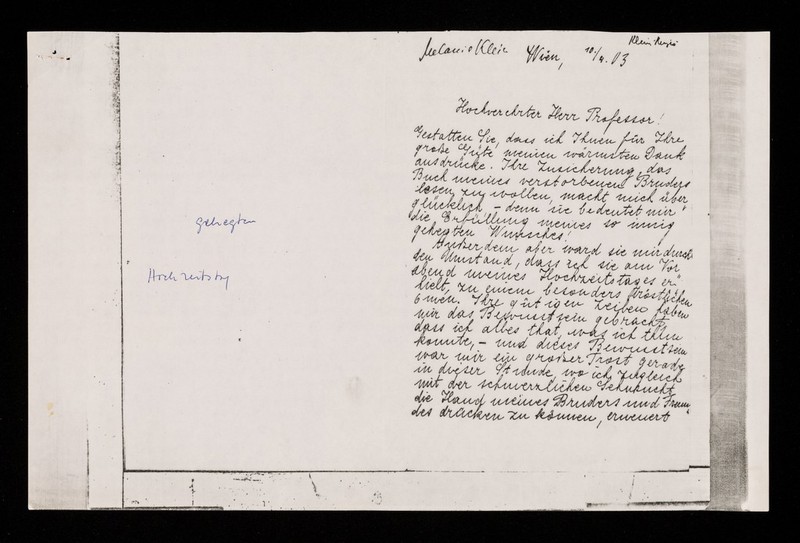 Melanie Klein
Wien,
Hochverehrter Herr Professor!
Gestatten Sie, dass ich Ihnen für Ihre
große Güte meinen wärmsten Dank
ausdrücke. Ihre Zusicherung, das
Buch meines verstorbenen Bruders
lesen zu wollen, macht mich über-
glücklich, – denn sie bedeutet mir
die Erfüllung meines so innig
gehegten Wunsches!
Außerdem aber ward sie mir durch
den Umstand, dass ich sie am Vor-
abend meines Hochzeitstages er-
hielt, zu einem besonders tröstlichen
Omen. Ihre gütigen Zeilen haben
mir das Bewusstsein gebracht,
dass ich alles that, was ich thun
konnte, – und dieses Bewusstsein
war mir ein großer Trost gerade
in dieser Stunde, wo ich zugleich
mit der schmerzlichen Sehnsucht,
die Hand meines Bruders und Freun-
des drücken zu können, erneuert
gehegten
Hochzeitstag